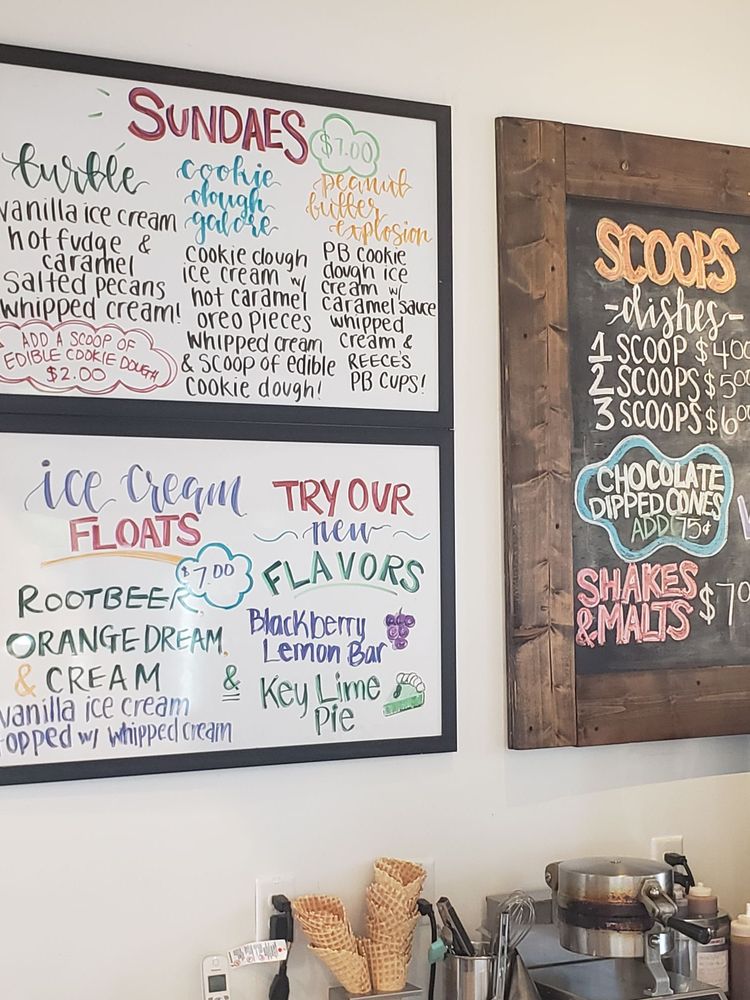 SUNDAES
$7.00
turtle
vanilla ice cream
hot fudge &
caramel
salted pecans
whipped cream!
ADD A SCOOP OF
EDIBLE COOKIE DOUGH
$2.00
cookie
dough
galore
cookie dough
ice cream w/
hot caramel
oreo pieces
whipped cream
& scoop of edible
cookie dough!
peanut
butter
explosion
PB cookie
dough ice
cream w/
caramel sauce
whipped
cream &
REECE'S
PB CUPS!
ice cream
FLOATS
$7.00
ROOTBEER
ORANGE DREAM
& CREAM
vanilla ice cream
topped w/ whipped cream
TRY OUR
new
FLAVORS
Blackberry
Lemon Bar
&
Key Lime
Pie
SCOOPS
-dishes-
1 SCOOP $400
2 SCOOPS $500
3 SCOOPS $600
CHOCOLATE
DIPPED CONES
ADD 75¢
SHAKES
& MALTS $70